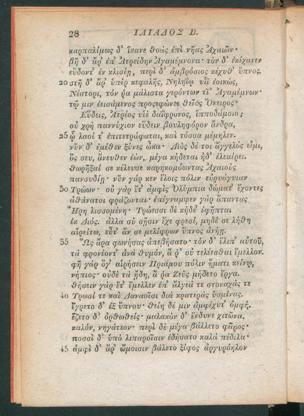 28 ΙΛΙΑΔΟΣ Β.
καρπαλίμως δ' ἵκανε θοὰς ἐπὶ νῆας Ἀχαιῶν·
βῆ δ' ἄρ' ἐπ' Ἀτρείδην Ἀγαμέμνονα· τὸν δ' ἐκίχανεν
εὕδοντ' ἐν κλισίῃ, περὶ δ' ἀμβρόσιος κέχυθ' ὕπνος.
20 στῆ δ' ἄρ' ὑπὲρ κεφαλῆς, Νηληίῳ υἷι ἐοικώς,
Νέστορι, τόν ῥα μάλιστα γερόντων τῖ' Ἀγαμέμνων·
τῷ μιν ἐεισάμενος προσεφώνεε θεῖος Ὄνειρος·
Εὕδεις, Ἀτρέος υἱὲ δαΐφρονος, ἱπποδάμοιο;
οὐ χρὴ παννύχιον εὕδειν βουληφόρον ἄνδρα,
25 ᾧ λαοί τ' ἐπιτετράφαται, καὶ τόσσα μέμηλεν.
νῦν δ' ἐμέθεν ξύνες ὦκα· Διὸς δέ τοι ἄγγελός εἰμι,
ὃς σευ, ἄνευθεν ἐών, μέγα κήδεται ἠδ' ἐλεαίρει.
θωρῆξαί σε κέλευσε καρηκομόωντας Ἀχαιούς
πανσυδίῃ· νῦν γάρ κεν ἕλοις πόλιν εὐρυάγυιαν
30 Τρώων· οὐ γὰρ ἔτ' ἀμφὶς Ὀλύμπια δώματ' ἔχοντες
ἀθάνατοι φράζονται· ἐπέγναμψεν γὰρ ἅπαντας
Ἥρη λισσομένη· Τρώεσσι δὲ κήδε' ἐφῆπται
ἐκ Διός. ἀλλὰ σὺ σῇσιν ἔχε φρεσί, μηδέ σε λήθη
αἱρείτω, εὖτ' ἄν σε μελίφρων ὕπνος ἀνήῃ.
35 Ὣς ἄρα φωνήσας ἀπεβήσατο· τὸν δ' ἔλιπ' αὐτοῦ,
τὰ φρονέοντ' ἀνὰ θυμόν, ἅ ῥ' οὐ τελέεσθαι ἔμελλον.
φῆ γὰρ ὅγ' αἱρήσειν Πριάμου πόλιν ἤματι κείνῳ,
νήπιος· οὐδὲ τὰ ᾔδη, ἅ ῥα Ζεὺς μήδετο ἔργα.
θήσειν γὰρ ἔτ' ἔμελλεν ἐπ' ἄλγεά τε στοναχάς τε
40 Τρωσί τε καὶ Δαναοῖσι διὰ κρατερὰς ὑσμίνας.
ἔγρετο δ' ἐξ ὕπνου· θείη δέ μιν ἀμφέχυτ' ὀμφή.
ἕζετο δ' ὀρθωθείς· μαλακὸν δ' ἔνδυνε χιτῶνα,
καλόν, νηγάτεον· περὶ δὲ μέγα βάλλετο φᾶρος·
ποσσὶ δ' ὑπὸ λιπαροῖσιν ἐδήσατο καλὰ πέδιλα·
45 ἀμφὶ δ' ἄρ' ὤμοισιν βάλετο ξίφος ἀργυρόηλον